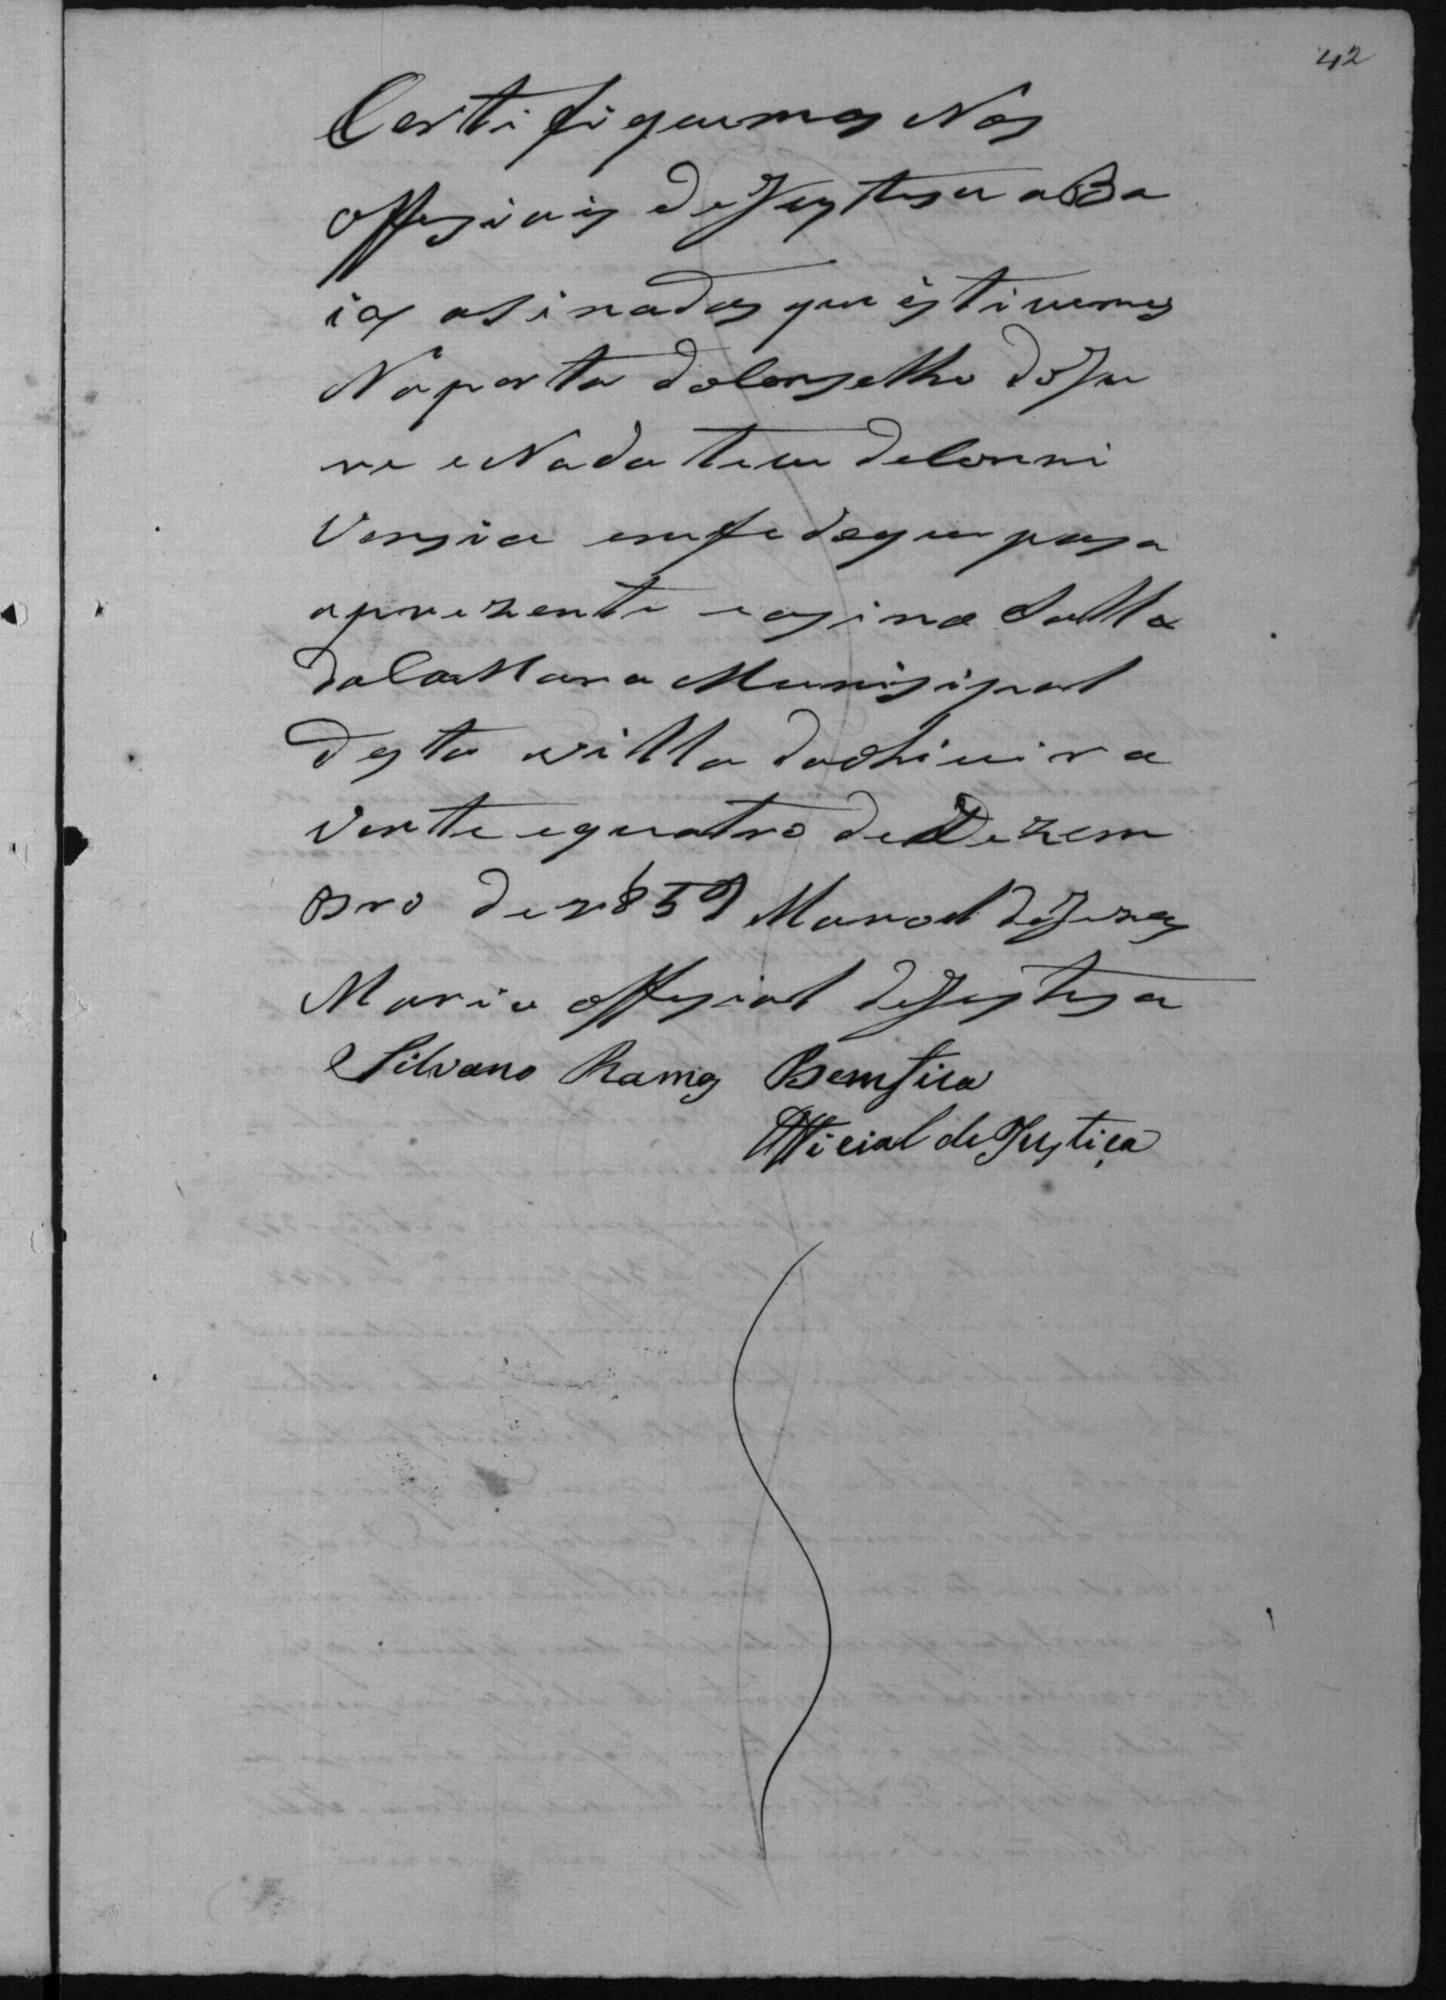 42
Certifiquemos Nos
offesiais de Justesa aBa
ixo asinados que estivemos
Na porta do Conselho do Ju
re e Nada teve de Comni
Versia em fe de que pasa
aprezente easino Salla
da CaMara Munisipal
desta villa da
vinte equatro de Dezem
Bro de 1859 Manoel de Jezus
Maria offesial de Justesa
Silvano Ramos Bemfica
Official de Justiça